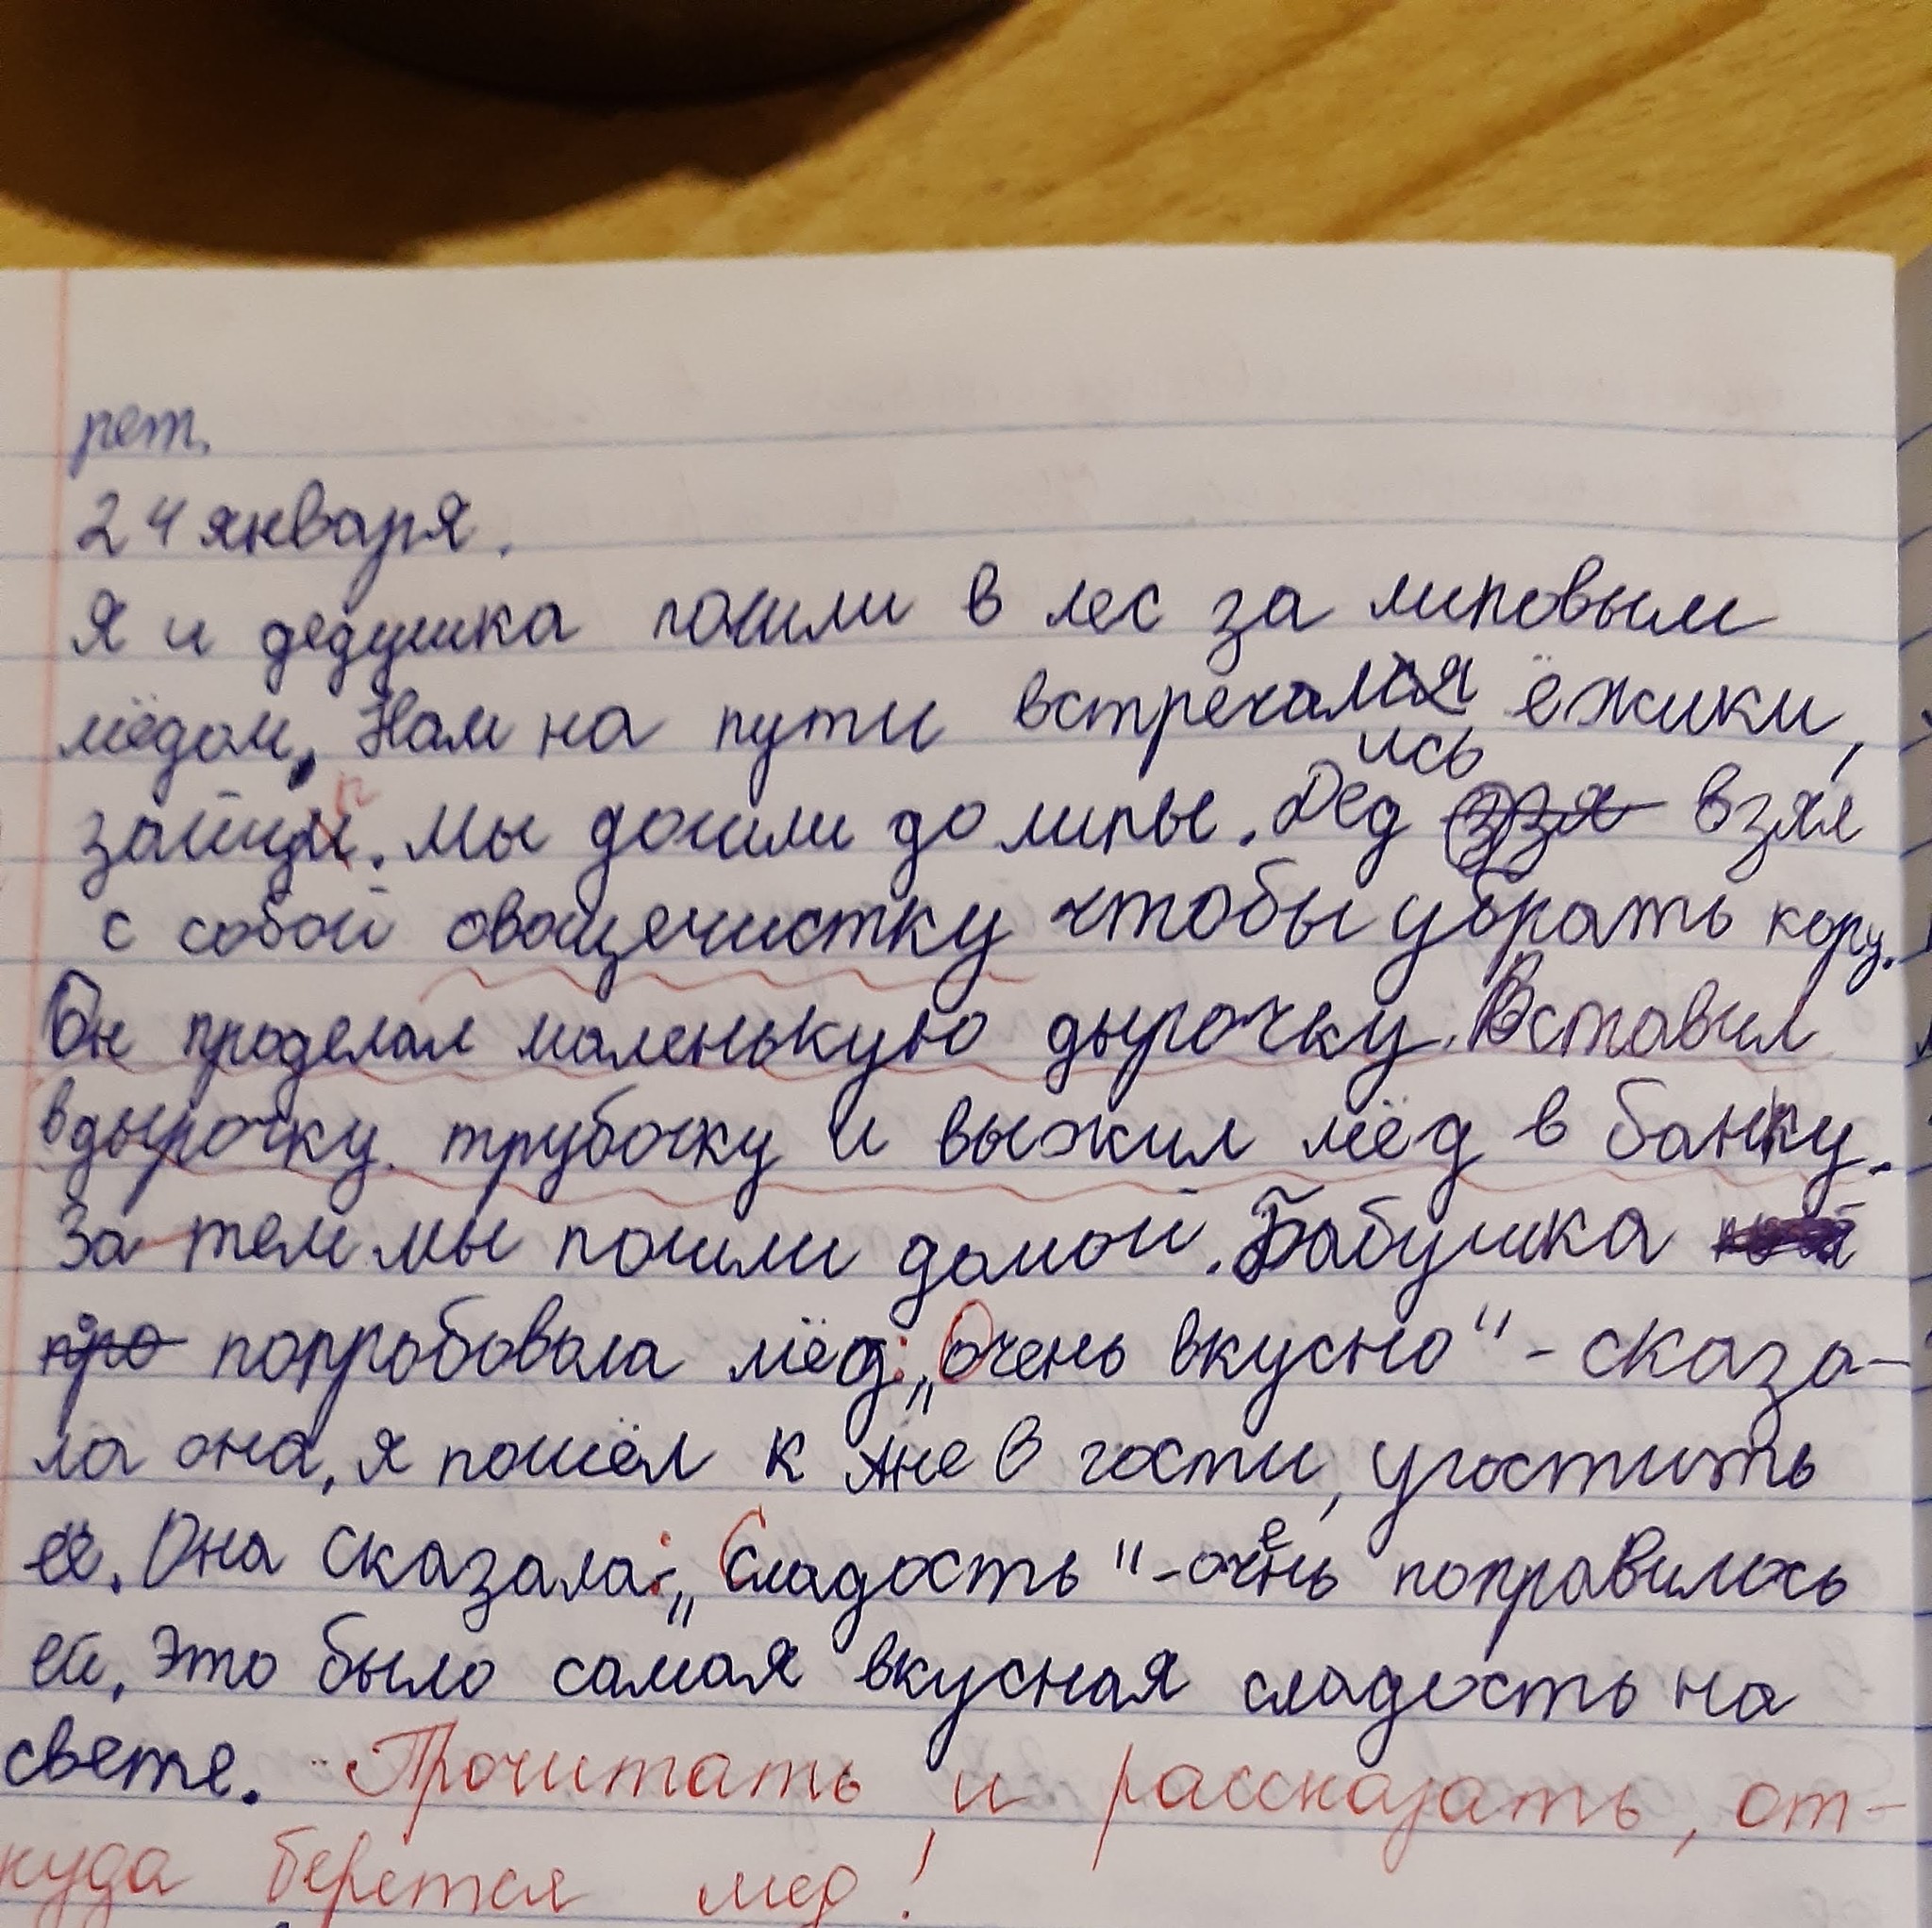 рет.
24 января.
Я и дедушка пошли в лес за липовым
мёдом. Нам на пути встречались ёжики,
зайцы. Мы дошли до липы. Дед взял
с собой овощечистку чтобы убрать кору.
Он проделал маленькую дырочку. Вставил
в дырочку трубочку и выжил мёд в банку.
За тем мы пошли домой. Бабушка
попробовала мёд: „Очень вкусно" - сказа-
ла она, я пошёл к в гости, угостить
её. Она сказала: „Сладость" - очень поправилось
ей. Это было самая вкусная сладость на
свете. Прочитать и рассказать, от-
куда берется мед!